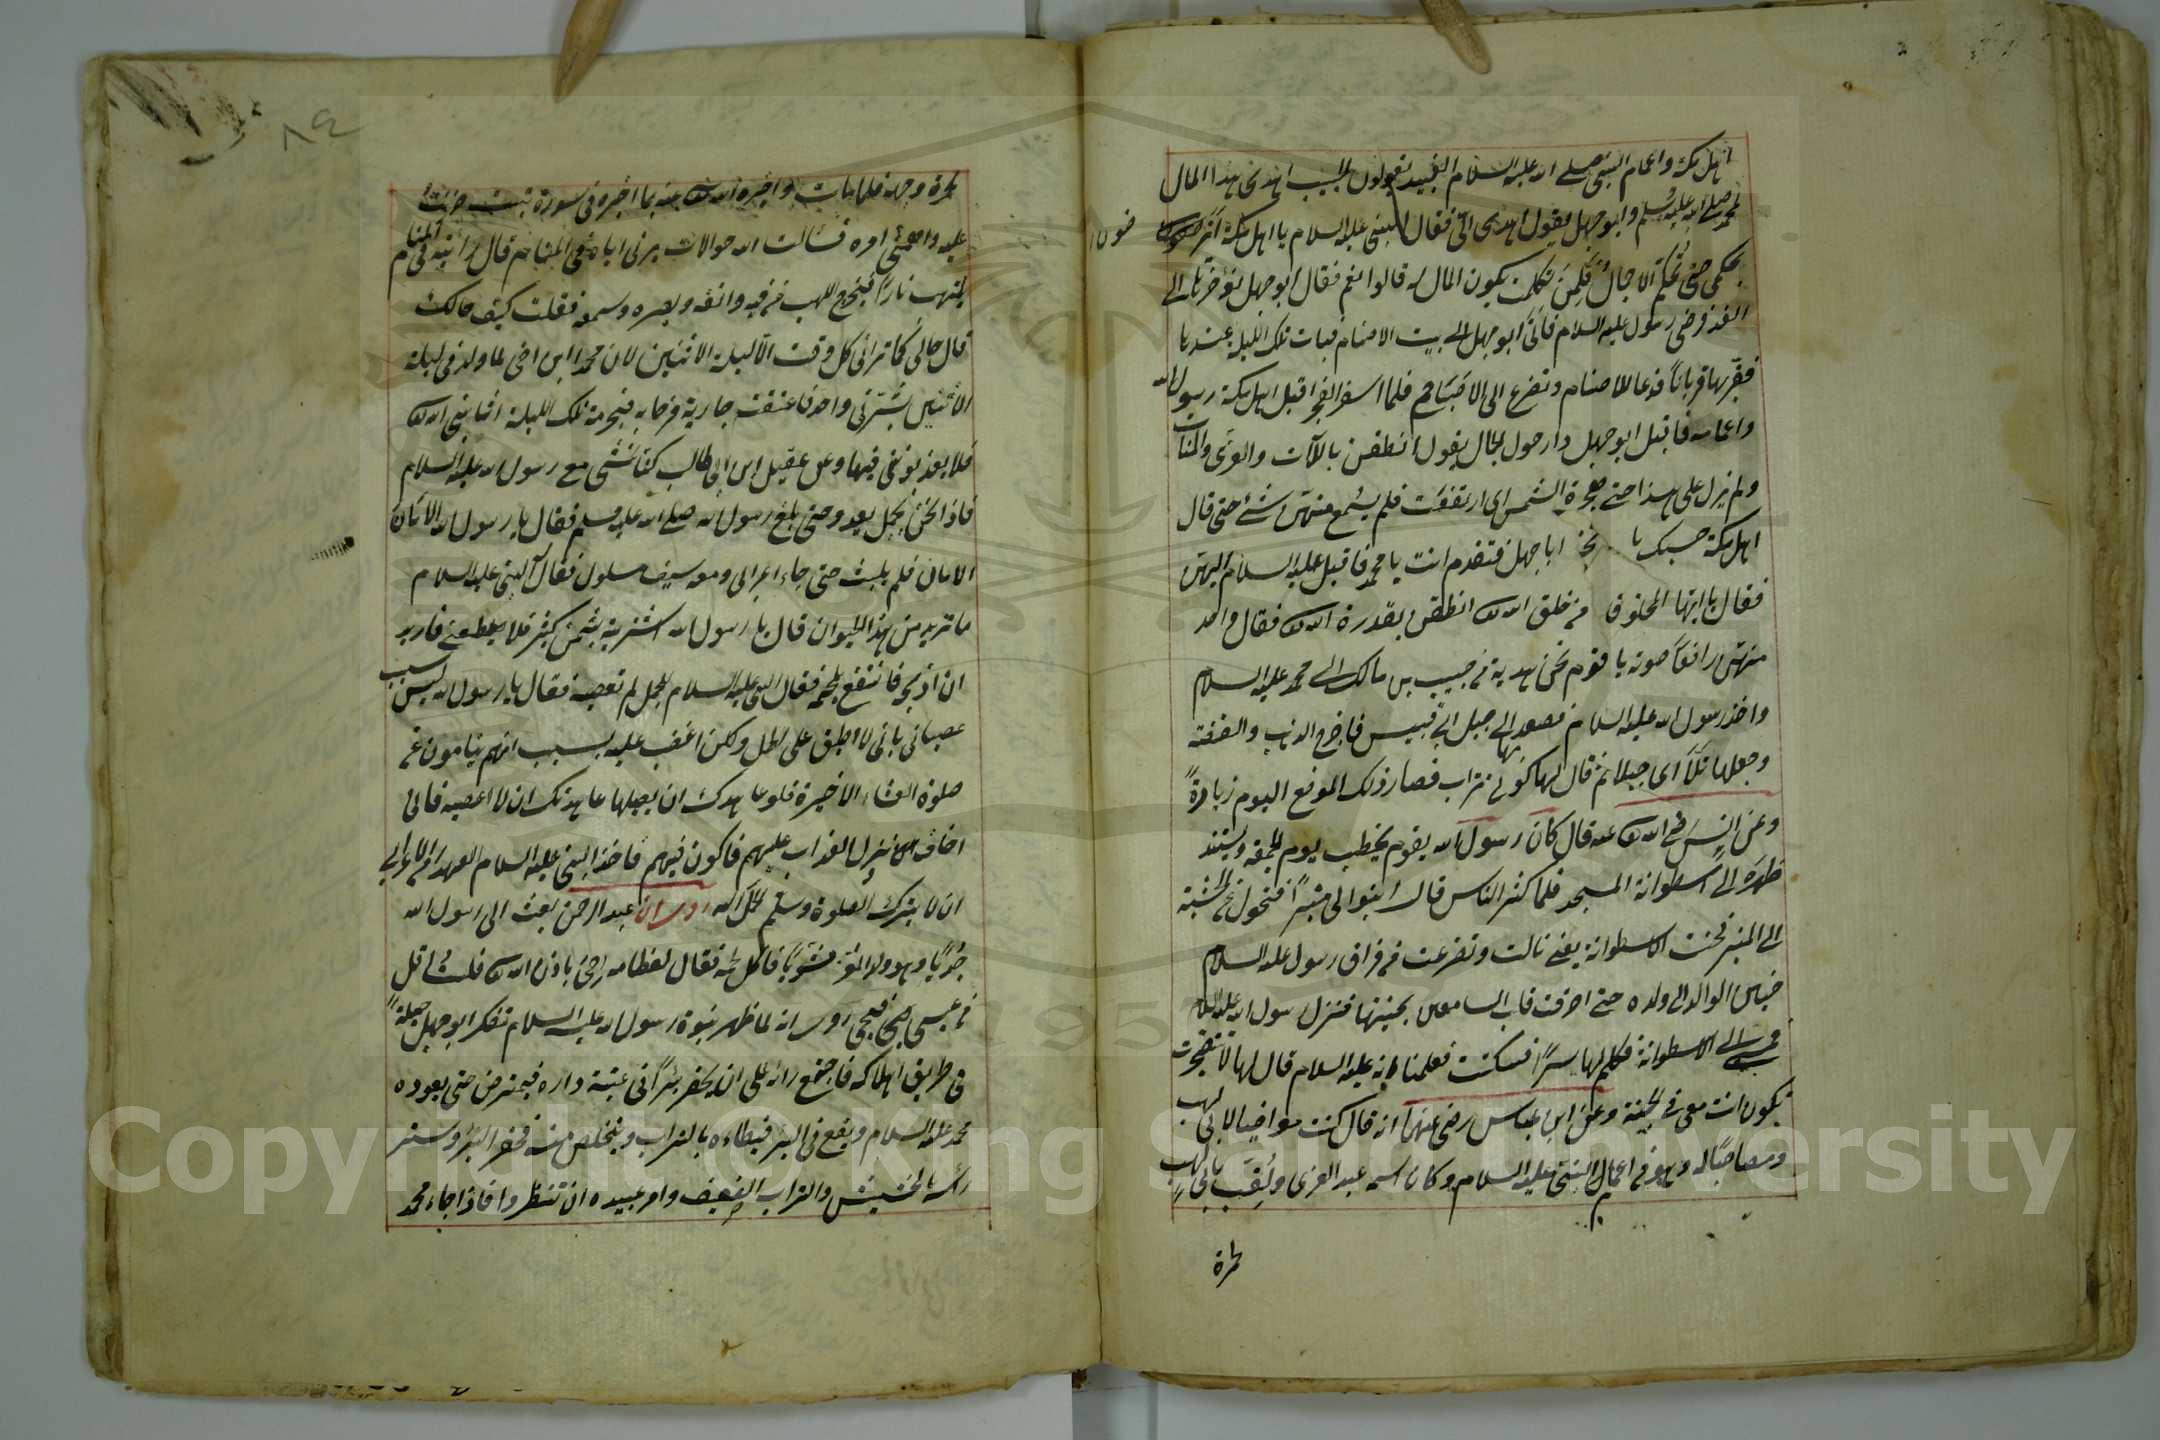 اهل مكة واعمام النبي صلى الله عليه السلام العبيد يقولون الحبيب اهدى هذا المال
لمحمد صلى الله عليه وسلم وابو جهل يقول اهدى الىّ فقال النبي عليه السلام يا اهل مكة
بحكمي حتى نحكم الاجمال فلمن تكلمت يكون المال له قالوا نعم فقال ابو جهل نؤخرها الى
الغد فرضى رسول عليه السلام فاتى ابو جهل الى بيت الاصنام فبات تلك الليلة عندها
فقربها قربانا فدعا للاصنام وتضرع الى الاصنام فلما اسفر الفجر اقبل اهل مكة رسول الله
واعمامه فاقبل ابو جهل دار حول الجمال يقول انطقن باللات والعزى والمنات
ولم يزل على هذا حتى الشمس اى ارتفعت فلم يسمع منهن شئ حتى قال
اهل مكة حسبك يا ابا جهل فتقدم انت يا محمد فاقبل عليه السلام اليهن
فقال يا ايتها المخلوقا من خلق الله انطقن بقدرة الله فقال واحد
منهن رافعا صوته يا قوم نحن هدية من حبيب بن مالك الى محمد عليه السلام
واخذ رسول الله عليه السلام فصعد الى جبل ابي قبيس فاخرج الذهب والفضة
وجعلها تلا اى جبلا ثم قال لها كوني تراب فصار ذلك الموضع اليوم زيارة
وعن انس رضى الله عنه قال كان رسول الله يقوم يخطب يوم الجمعة ويستند
ظهره الى اسطوانة المسجد فلما كثر الناس قال ابنوا لى منبرا فتحول عن الخشبة
الى المنبر فحنت الاسطوانة يعنى نالت وتضرعت من فراق رسول عليه السلام
حنين الوالد الى ولده حتى السامعين بحنينها فنزل رسول الله عليه السلام
الى الاسطوانة فكلم لها سرا فسكنت فعلمنا انه عليه السلام قال لها
تكون انت معى فى الجنة وعن ابن عباس رضى عنهما انه قال كنت مواخيا لابى لهب
ومصاحبا له وهو من اعمام النبي عليه السلام وكان اسمه عبد العزى ولقب بابى لهب
لحمرة
لحمرة وجهه فلما مات واخبره الله عنه بما اخبره فى سورة تبت حزنت
عليه واهمنى امره فسالت الله حوالات يرنى اياه فى المنام قال رأيته فى المنام
يلتهب نارا فيخرج اللهب من فيه وانفه وبصره وسمعه فقلت كيف حالك
قال حالى كما ترانى كل وقت الا ليلة الاثنين لان محمدا ابن اخى لما ولد فى ليلة
الاثنين بشرنى واحد فاعتقت جارية فرحا به فبحرمة تلك الليلة الله
فلا يعذبونى فيها وعن عقيل ابن ابى طالب كنا نمشى مع رسول الله عليه السلام
فاذا نحن بجمل يعدو حتى بلغ رسول الله صلى الله عليه وسلم فقال يا رسول الله الامان
الامان فلم يلبث حتى جاء اعرابى ومعه سيف مسلول فقال النبي عليه السلام
ما تريد من هذا الحيوان قال يا رسول الله اشتريته بثمن كثير فلا يطيعنى فاريد
ان اذبحه فانتفع بلحمه فقال النبي عليه السلام للجمل لم تعصيه فقال يا رسول الله ليس
عصيانى بانى لا اطيق على الحمل ولكن اغضب عليه بسبب انهم ينامون عن
صلوة العشاء الاخيرة فلو عاهدك ان يصليها عاهدتك ان لا اعصيه فانى
اخاف ان ينزل العذاب عليهم فاكون فيهم فاخذ النبي عليه السلام العهد من الاعرابى
ان لا يترك الصلوة وسلم الجمل اليه روى ان عبد الرحمن بعث الى رسول الله
جديا وهو ولد المعز مشويا فاكل لحمه فقال لعظامه احى باذن الله
روى انه لما ظهر نبوة رسول الله عليه السلام تفكر ابو جهل حيلة
فى طريق اهلاكه فاجتمع رائه على ان يحفر بئرا فى عتبة داره فيتمرض حتى يعوده
محمد عليه السلام ويقع فى البئر فيملاءه بالتراب ويتخلص منه فحفر البئر وستر
رأسه بالحشيش والتراب الضعيف وامر عبيده ان تنتظروا فاذا جاء محمد